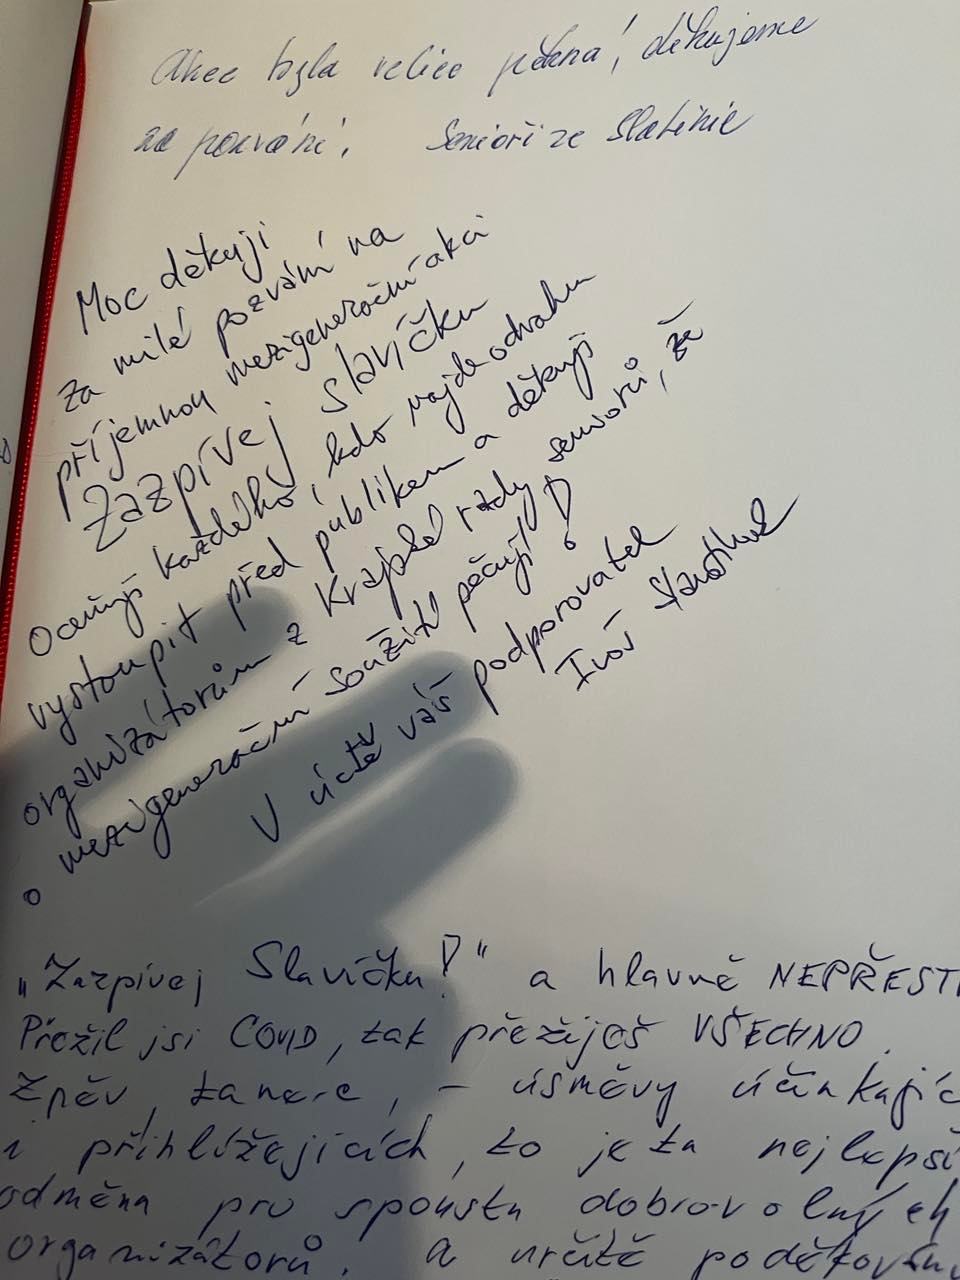 Akce byla velice pěkná, děkujeme
za pozvání. Senioři ze Slatiňic
Moc děkuji
za milé pozvání na
příjemnou mezigenerační akci
Zazpívej slavíčku
Oceňuji každého, kdo najde odvahu
vystoupit před publikem a děkuji
organizátorům z Krajské rady seniorů, že
o mezigenerační soužití pečují!
V úctě váš podporovatel
Ivoš
"Zazpívej Slavíčku!" a hlavně NEPŘEST
Přežil jsi COVID, tak přežiješ VŠECHNO.
Zpěv, tance, - úsměvy účinkujíc
i přihlížejících, to je ta nejlepší
odměna pro spoustu dobrovolných
organizátorů. A určitě poděkován